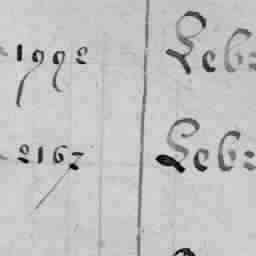 1992 Leb:
2167 Leb: